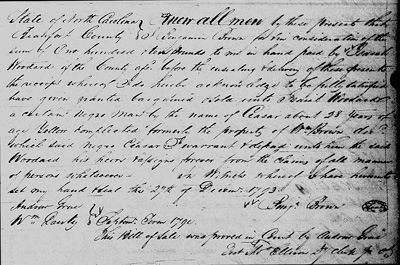 State of North Carolina } Know all men by these presents that
Beaufort County } I Benjamin Brown for & in consideration of the
sum of One hundred & ten pounds to me in hand paid by
Woodard of the County afs. before the ensealing & delivery of these presents
the receipt whereof I do hereby acknowledge to be fully satisfied
have given granted bargained & sold unto Woodard
a certain Negro Man by the name of Ceasar about 28 years of
age Yellow Complected formerly the property of Wm Brown decd
which said Negro Ceasar I warrant & defend unto him the said
Woodard his heirs & assigns forever from the claims of all manner
of persons whatsoever in Witness whereof I have hereunto
set my hand & seal the 27th of Decem. 1793
Andrew
Wm
Benj. Brown
Septem. Term 1794
This Bill of Sale was proved in Court by Andrew
Test